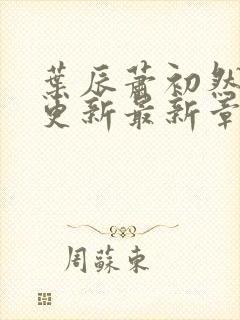 葉辰蕭初然
更新最新章
周蘇東